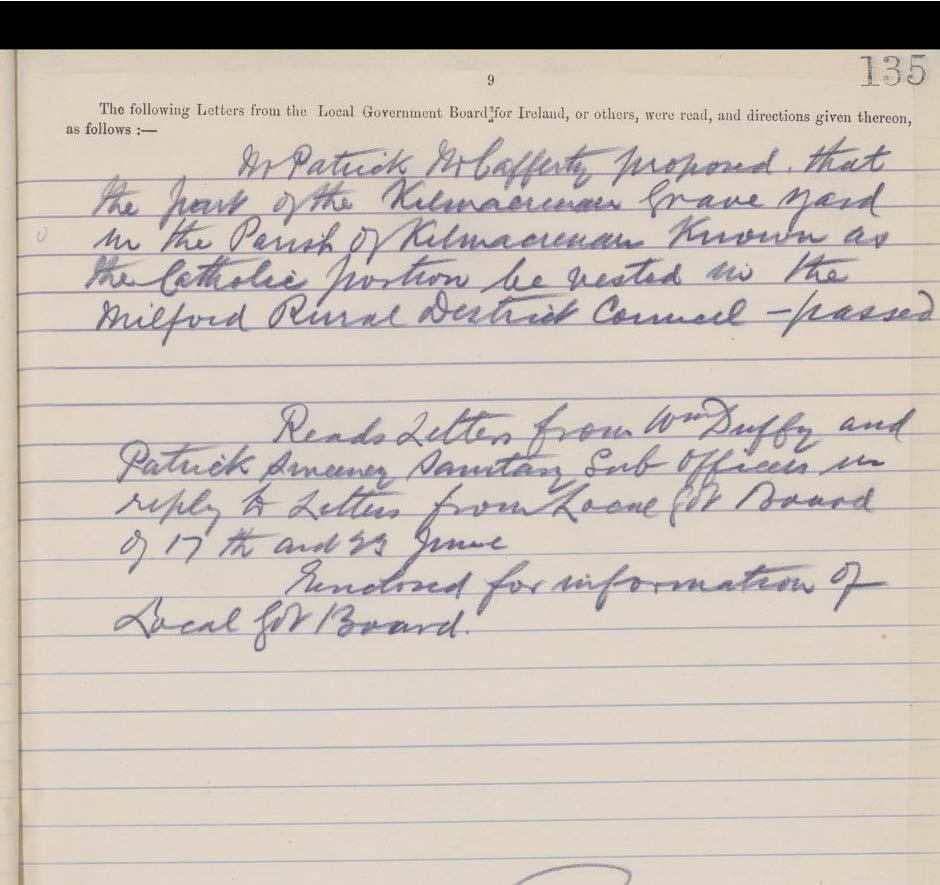 135
9
The following Letters from the Local Government Board for Ireland, or others, were read, and directions given thereon,
as follows :—
Mr Patrick McCafferty proposed that
the part of the Kilmacrenan Grave yard
in the Parish of Kilmacrenan Known as
the Catholic portion be vested in the
Milford Rural District Council — passed
Reads Letters from Wm Duffy and
Patrick Sweeney Sanitary Sub Officers in
reply to Letters from Local Govt Board
of 17th and 23 June
Enclosed for information of
Local Govt Board.